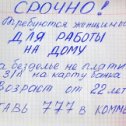 СРОЧНО!
Требуются женщины
ДЛЯ РАБОТЫ
НА ДОМУ
безделье не плати
З/П на карту банка
Возраст от 22 лет
ТАВЬ 777 в КОММЕ